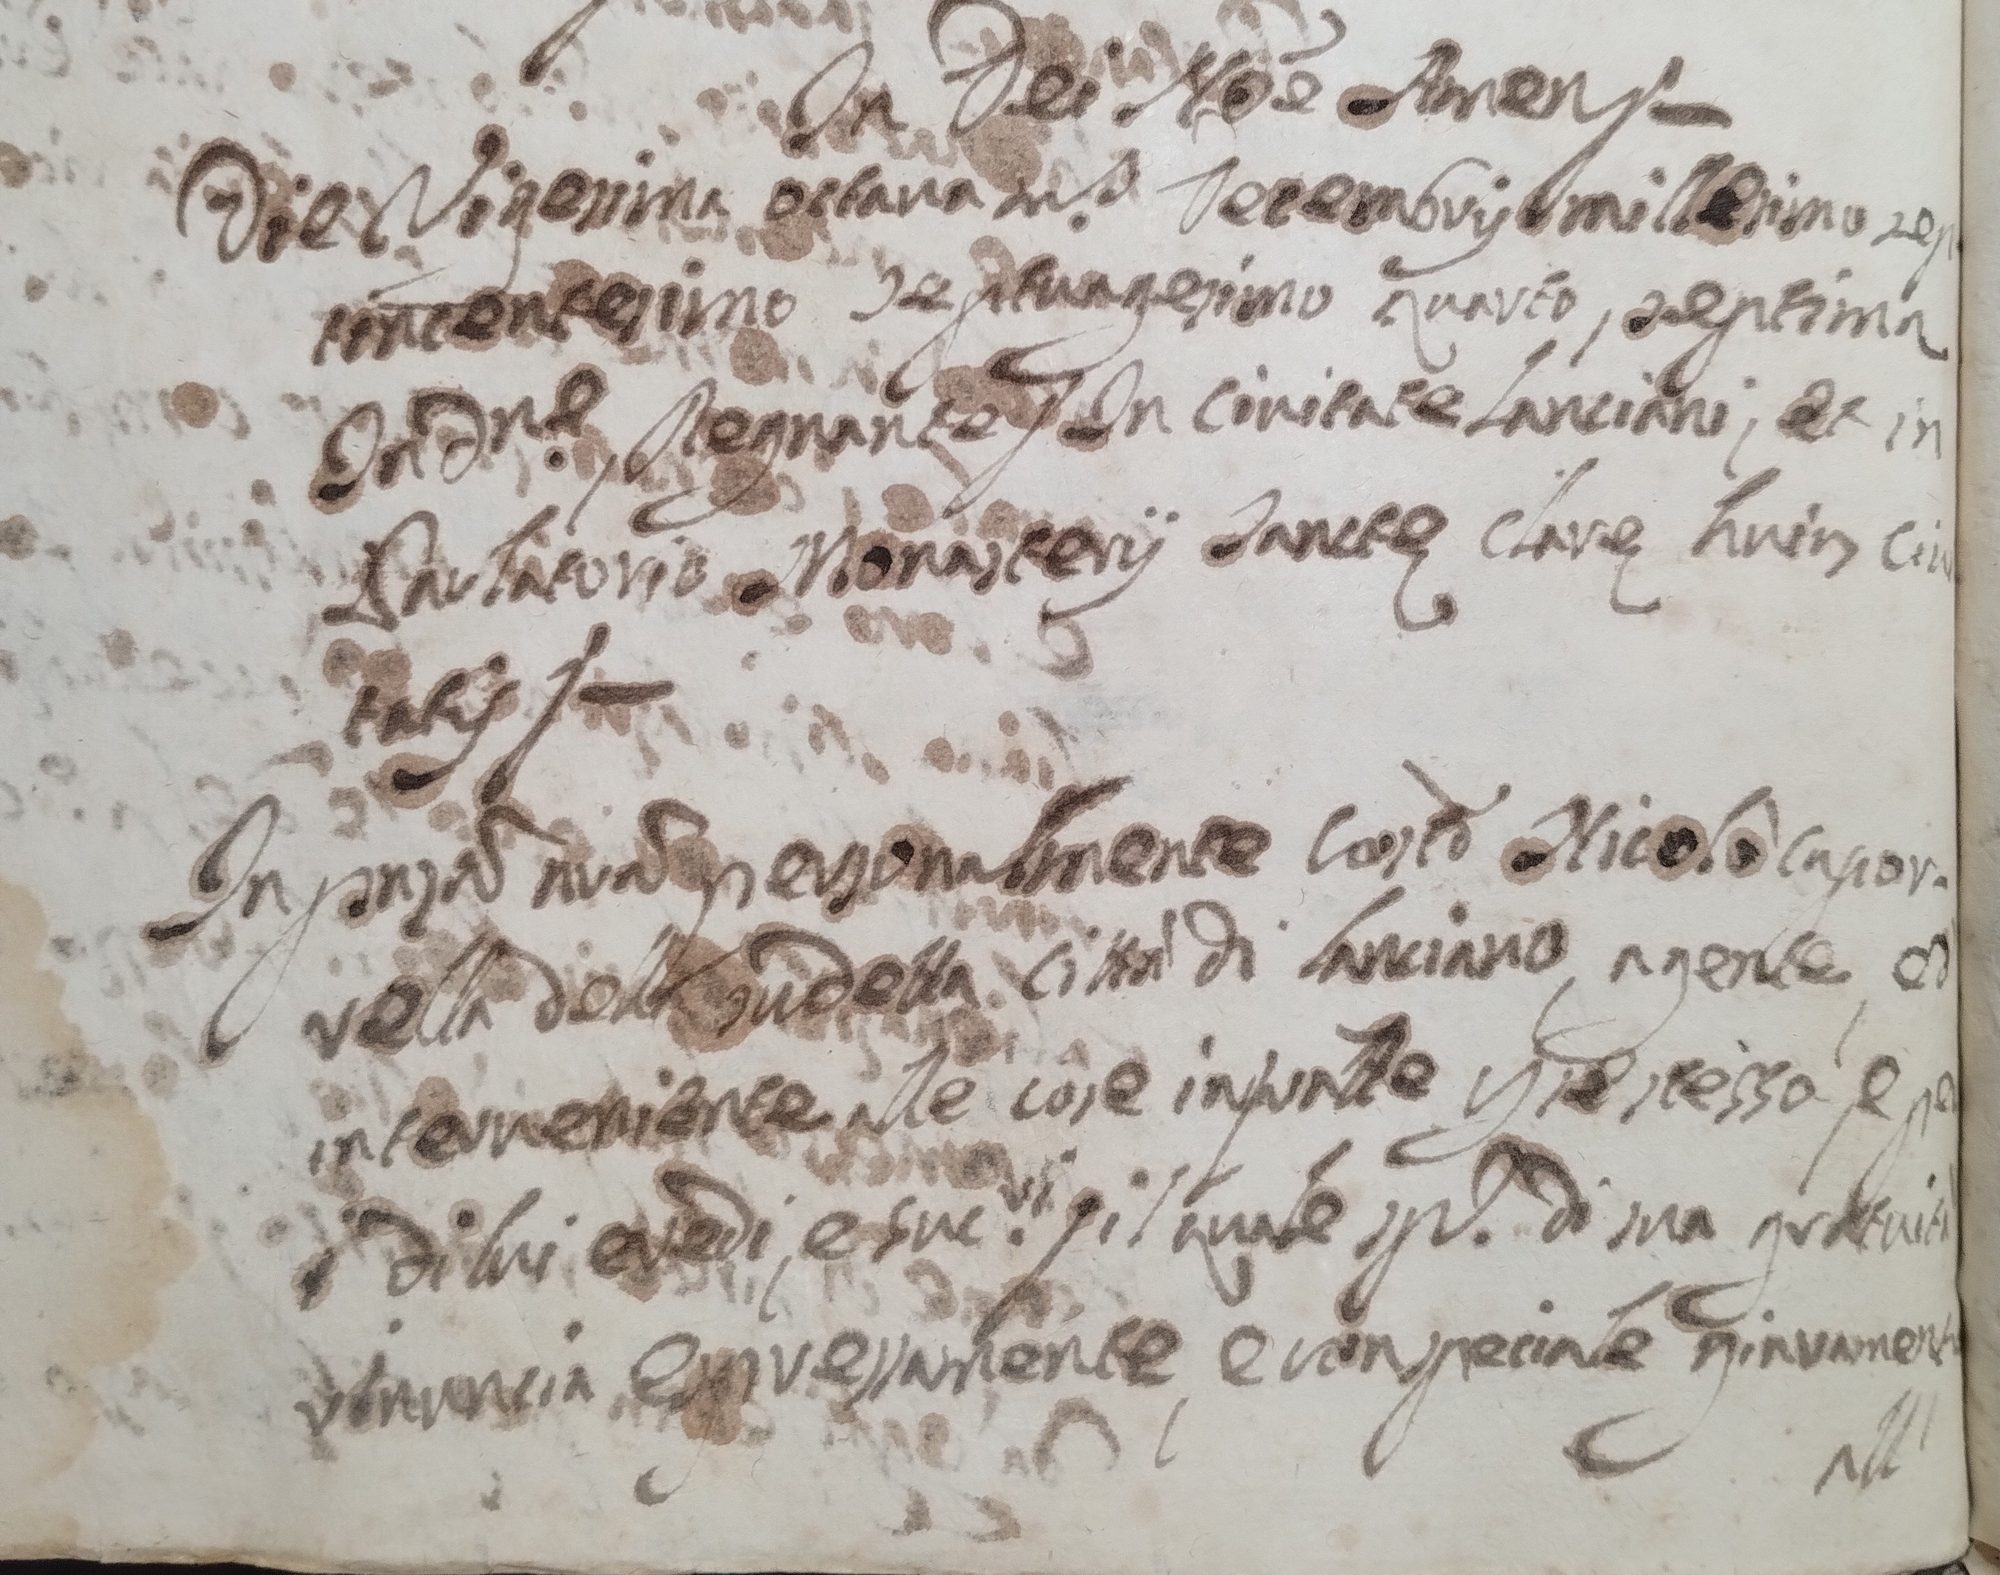 In Dei Nõe Amen
Die Vigesima octava m.s Decembrij millesimo sep
tincentesimo septuagesimo quarto, septima
Indn.e, Regnante, In Civitate Lanciani, et in
Parlatorio Monasterij Sanctę Clarę huius Civi
tatis
In pñza nrã personalmente costõ Nicolò Capor.
rella della sudetta Città di Lanciano, agente, ed
interveniente alle cose infratte p se stesso, e per
i di lui eredi, e suc.ri, il quale sp.e di sua gratuita
rinuncia espressamente, e con speciale giuramento
all'